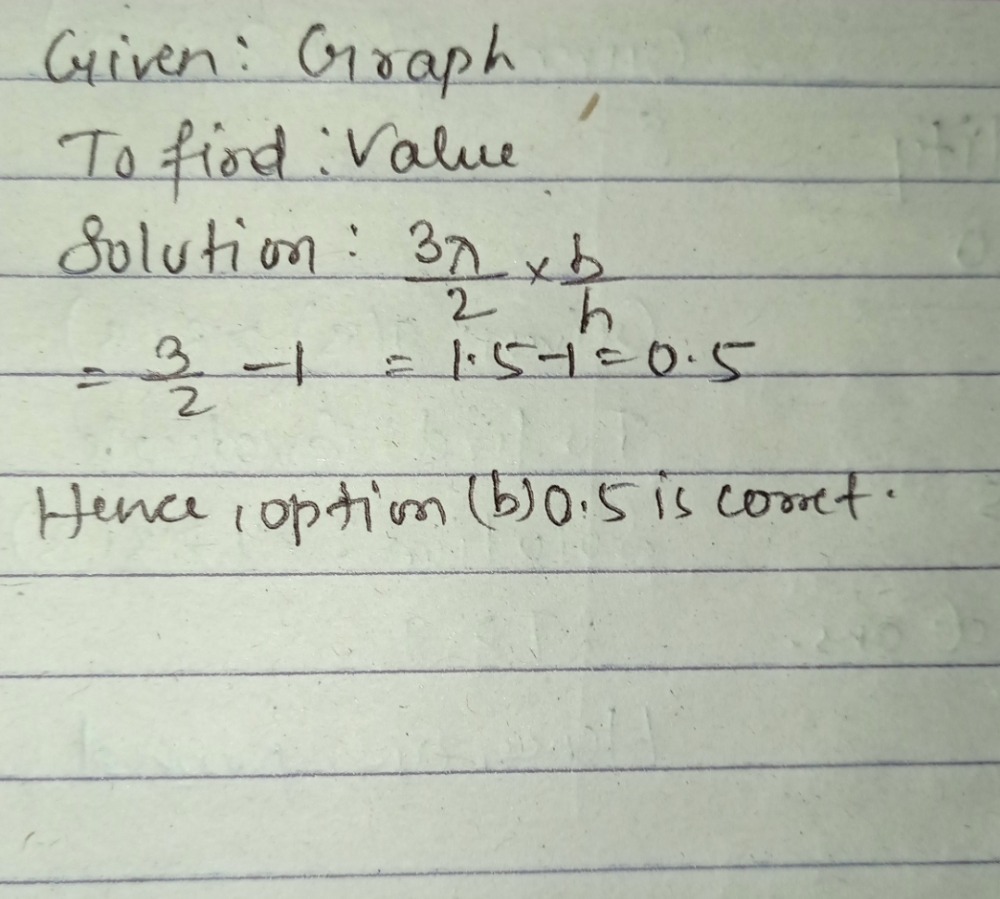 Given: Graph
To find: Value
Solution: 3π/2 × b/h
= 3/2 -1 = 1.5-1 = 0.5
Hence, option (b) 0.5 is corret.